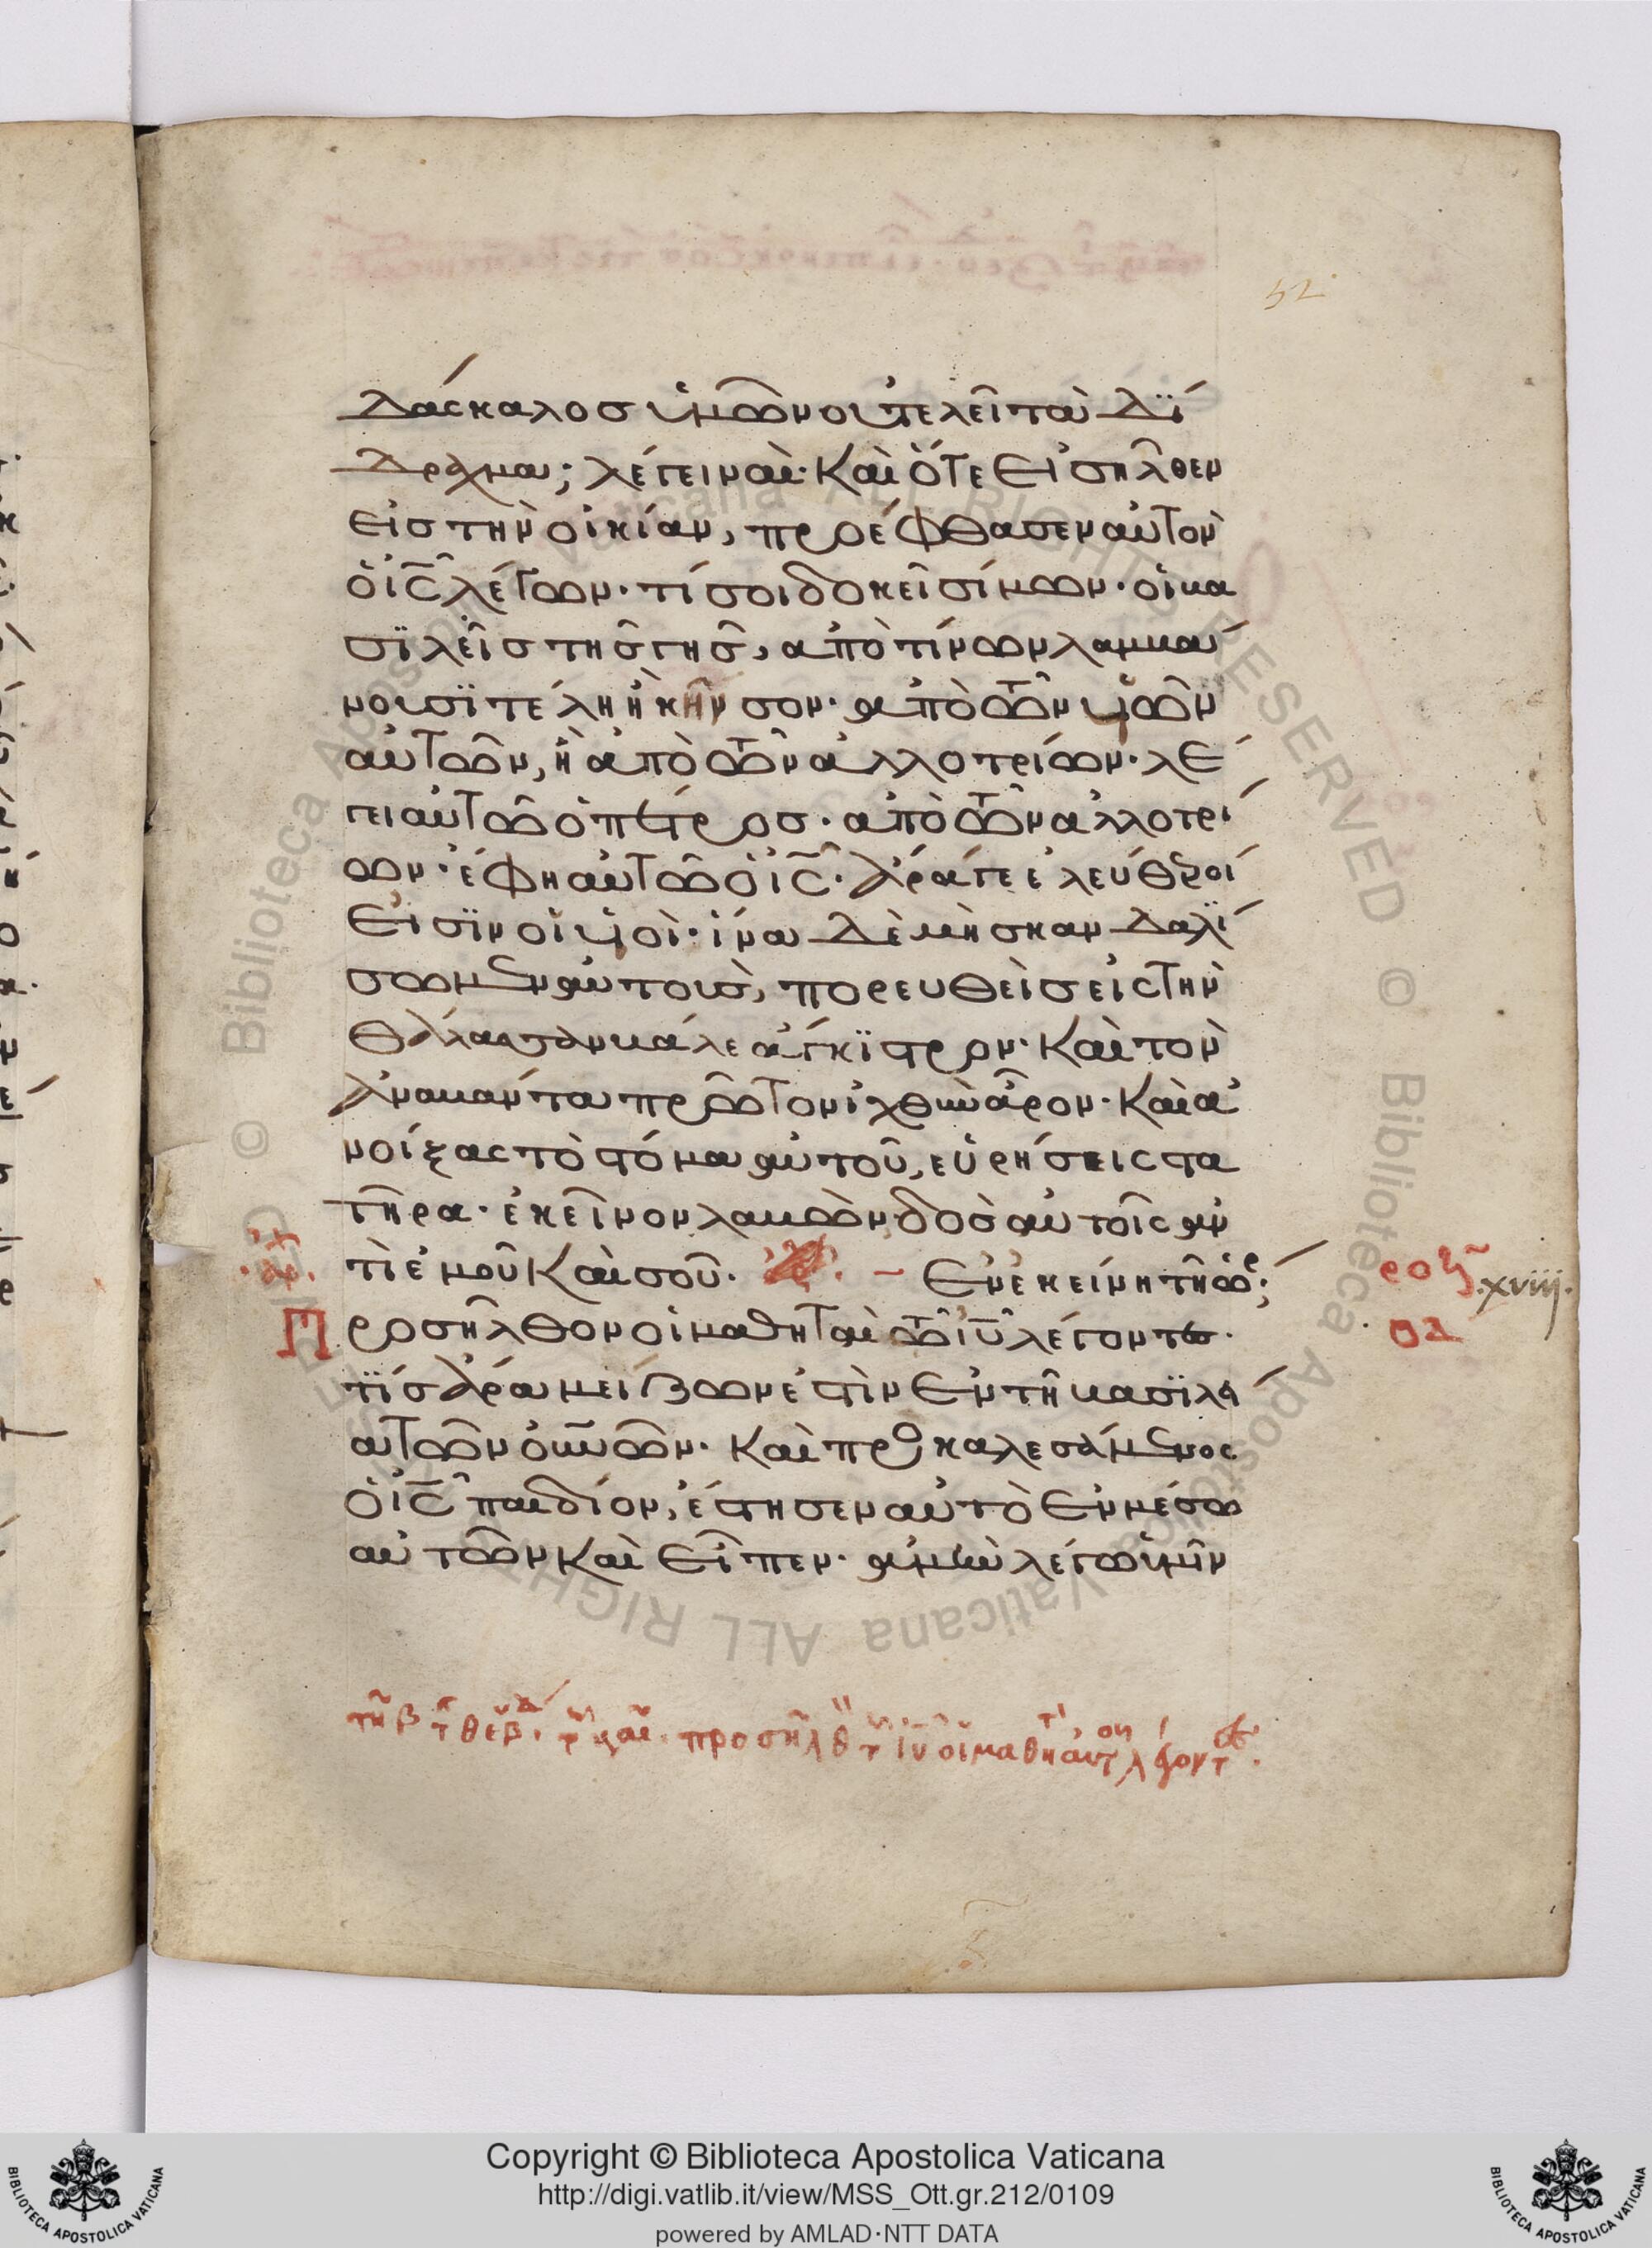 52
δάσκαλοσ ὑμῶν οὐ τελεῖ τὰ δί
δραχμα; λέγει ναί· Καὶ ὅτε εἰσῆλθεν
εἰσ τὴν οἰκίαν, προέφθασεν αὐτὸν
ὁ ἰς̄ λέγων· τί σοι δοκεῖ σίμων· οἱ βα
σϊλεῖσ τῆσ γῆσ, ἀπὸ τίνων λαμβά
νουσϊ τέλη ἢ κῆνσον· ἀπὸ τῶν υἱῶν
αὐτῶν, ἢ ἀπὸ τῶν ἀλλοτρίων· λέ
γει αὐτῶ ὁ πέτροσ· ἀπὸ τῶν ἀλλοτρί
ων· ἔφη αὐτῶ ὁ ἰς̄· ἄρα γε ἐλεύθεροί
εἰσϊν οἱ υἱοὶ· ἵνα δὲ μὴ σκανδαλί
σωμεν αὐτουσ, πορευθεὶσ εἰς τὴν
θάλασσαν βάλε ἄγκϊστρον· Καὶ τὸν
ἀναβάντα πρῶτον ἰχθὺν ἆρον· Καὶ ἀ
νοίξας τὸ στόμα αὐτοῦ, εὑρήσεις στα
τῆρα· ἐκεῖνον λαβὼν δὸσ αὐτοῖς ἀν
τὶ ἐμοῦ Καὶ σοῦ· – Ἐν ἐκείνη τῆ ὥρ;
Προσῆλθον οἱ μαθηταὶ τῶ ἰῦ λέγοντες·
τίσ ἄρα μείζων ἐστὶν ἐν τῆ βασϊλεί
α τῶν οὐνῶν· Καὶ προσκαλεσάμενος
ὁ ἰς̄ παιδίον, ἔστησεν αὐτὸ ἐν μέσω
αὐτῶν Καὶ εἶπεν· ἀμὴν λέγω ὑμῖν
ἀρ
xviii.
Copyright © Biblioteca Apostolica Vaticana
http://digi.vatlib.it/view/MSS_Ott.gr.212/0109
powered by AMLAD·NTT DATA
BIBLIOTECA APOSTOLICA VATICANA
BIBLIOTECA APOSTOLICA VATICANA